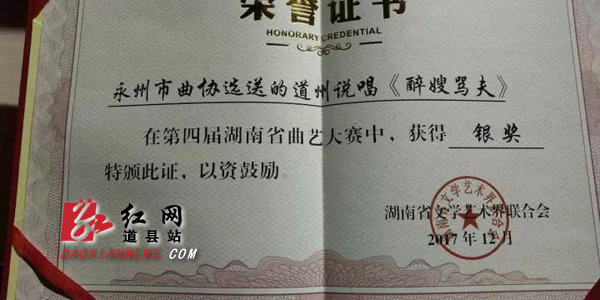 荣誉证书
HONORARY CREDENTIAL
永州市曲协选送的道州说唱《醉嫂骂夫》
在第四届湖南省曲艺大赛中，获得 银奖
特颁此证，以资鼓励。
湖南省文学艺术界联合会
2017年12月
红网
道县站
DAOXIANNEWS.COM